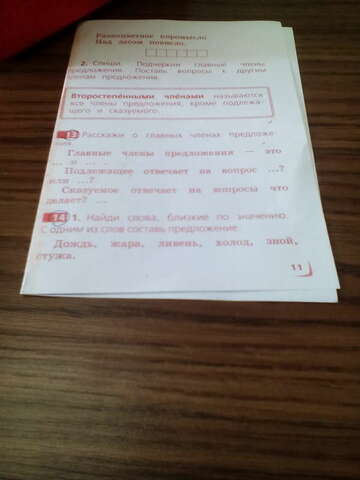 Разноцветное коромысло
Над лесом повисло.
2. Спиши. Подчеркни главные члены
предложения. Поставь вопросы к другим
членам предложения.
Второстепенными членами называются
все члены предложения, кроме подлежа-
щего и сказуемого.
13 Расскажи о главных членах предложе-
ния.
Главные члены предложения — это
... и ... .
Подлежащее отвечает на вопрос ...?
или ...?
Сказуемое отвечает на вопросы что
делает? ...
14 1. Найди слова, близкие по значению.
С одним из слов составь предложение.
Дождь, жара, ливень, холод, зной,
стужа.
11